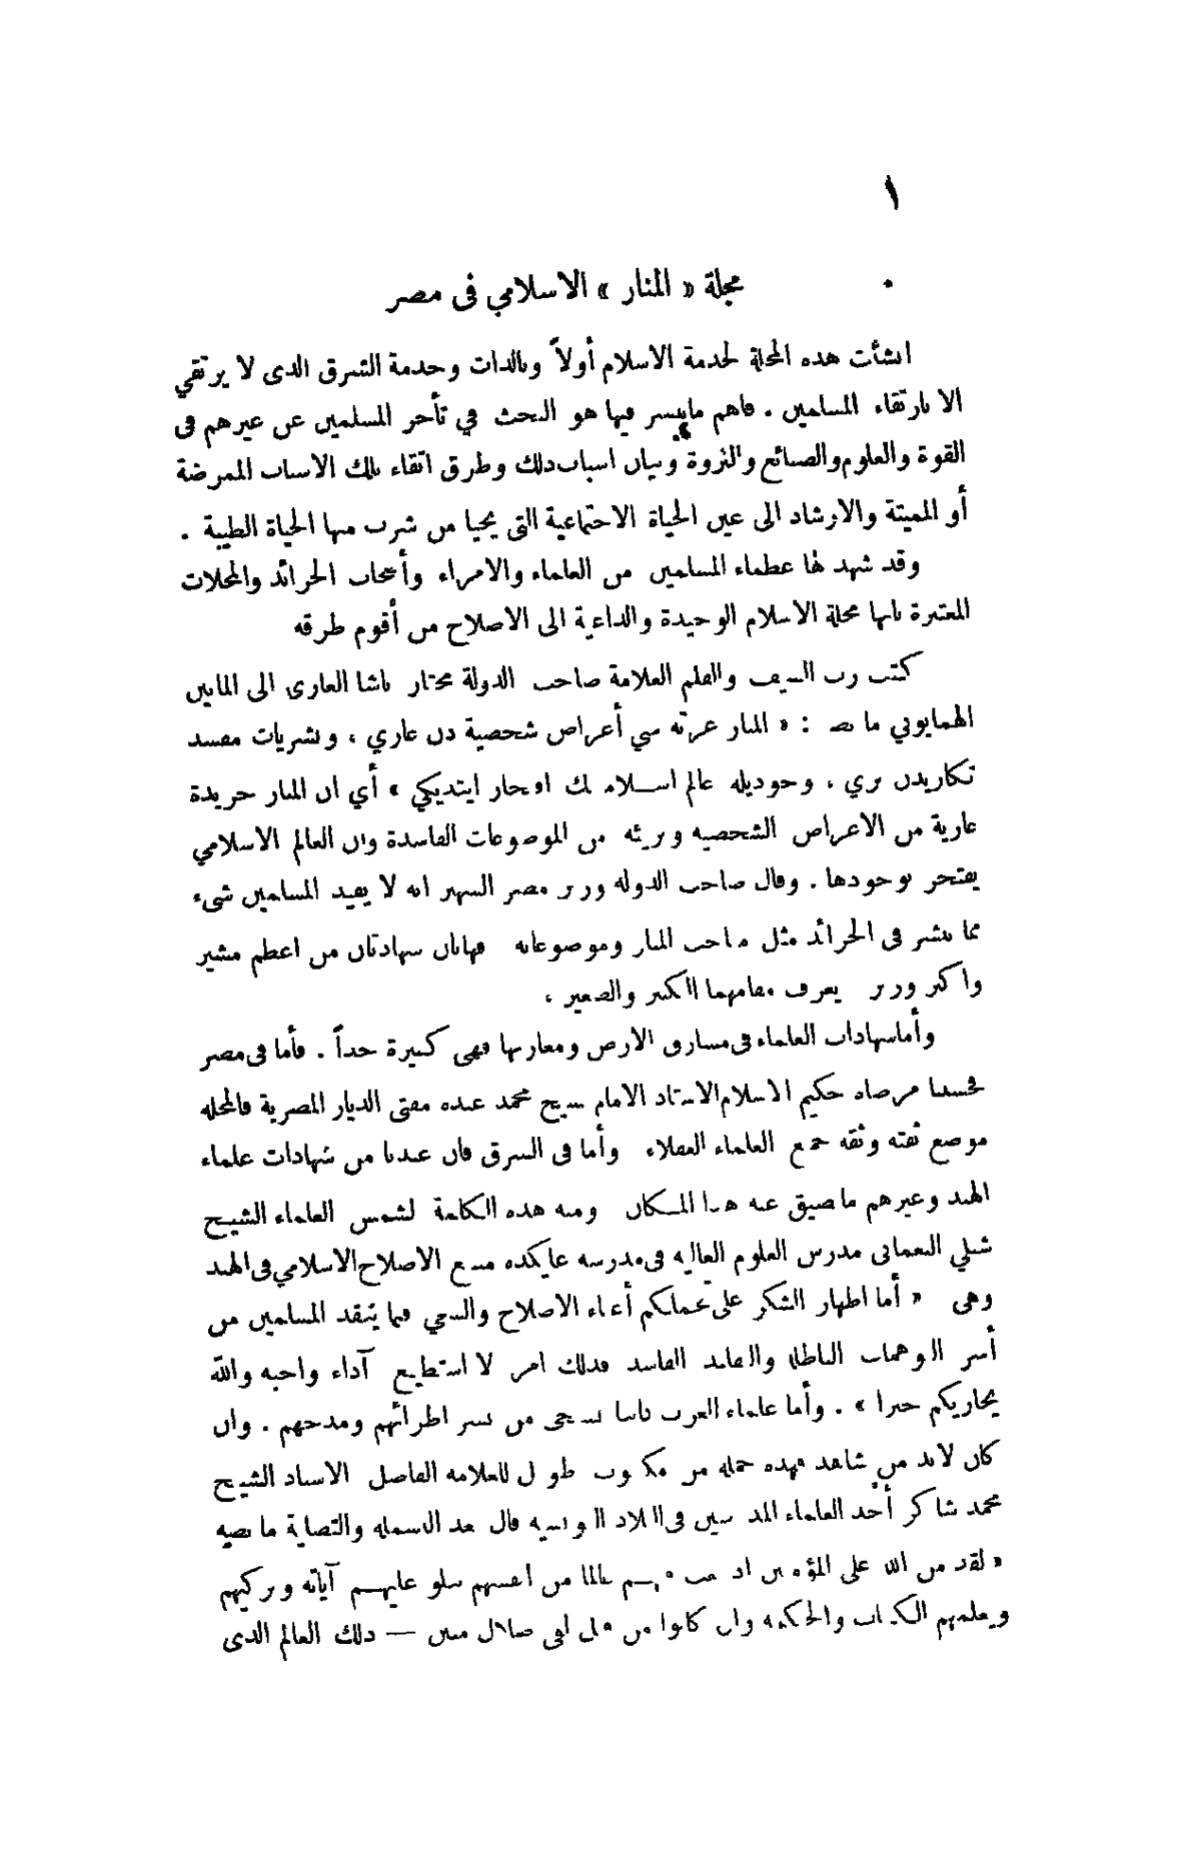 ١
مجلة « المنار » الاسلامي فى مصر
انشأت هذه المجلة لخدمة الاسلام أولاً وبالذات وخدمة الشرق الذى لا يرتقي
الا بارتقاء المسلمين . فاهم ماينشر فيها هو البحث في تأخر المسلمين عن غيرهم فى
القوة والعلوم والصنائع والثروة وبيان اسباب ذلك وطرق اتقاء تلك الاسباب الممرضة
أو المميتة والارشاد الى عين الحياة الاجتماعية التى يحيا من شرب منها الحياة الطيبة .
وقد شهد لها عظماء المسلمين من العلماء والامراء وأصحاب الجرائد والمجلات
المعتبرة بانها مجلة الاسلام الوحيدة والداعية الى الاصلاح من أقوم طرقه
كتب رب السيف والقلم العلامة صاحب الدولة مختار باشا الغازى الى المابين
الهمايوني ما نصه : « المنار غزته سي أغراض شخصية دن عاري ، ونشريات مفسد
تكاريدن بري ، وجوديله عالم اسلامك افتخار ايتديكي » أي ان المنار جريدة
عارية من الاغراض الشخصية وبريئة من الموضوعات الفاسدة وان العالم الاسلامي
يفتخر بوجودها . وقال صاحب الدولة وزير مصر الشهير انه لا يفيد المسلمين شىء
مما ينشر فى الجرائد مثل مباحث المنار وموضوعاته فهاتان شهادتان من اعظم مشير
واكبر وزير يعرف مقامهما الكبير والصغير ،
وأماشهادات العلماء فى مشارق الارض ومغاربها فهى كثيرة جداً . فأما فى مصر
فحسبنا مرضاة حكيم الاسلام الاستاذ الامام الشيخ محمد عبده مفتى الديار المصرية فالمجلة
موضع ثقته وثقة جميع العلماء العقلاء وأما فى الشرق فان عندنا من شهادات علماء
الهند وغيرهم ما يضيق عنه هذا المكان ومنه هذه الكلمة لشمس العلماء الشيخ
شبلي النعمانى مدرس العلوم العالية فى مدرسة عليكده منبع الاصلاح الاسلامي فى الهند
وهى « أما اظهار الشكر على تحملكم أعباء الاصلاح والسعي فيما ينقذ المسلمين من
أسر الوهميات الباطلة والعقائد الفاسدة فذلك امر لا استطيع آداء واجبه والله
يجازيكم خيرا » . وأما علماء الغرب فاننا نستحى من نشر اطرائهم ومدحهم . وان
كان لابد من شاهد فهذه جملة من مكتوب طويل للعلامة الفاضل الاستاذ الشيخ
محمد شاكر أحد العلماء المدرسين فى البلاد التونسية قال بعد البسملة والتصلية ما نصه
« لقد من الله على المؤمنين اذ بعث فيهم عالما من انفسهم يتلو عليهم آياته ويزكيهم
ويعلمهم الكتاب والحكمة وان كانوا من قبل لفى ضلال مبين — ذلك العالم الذى